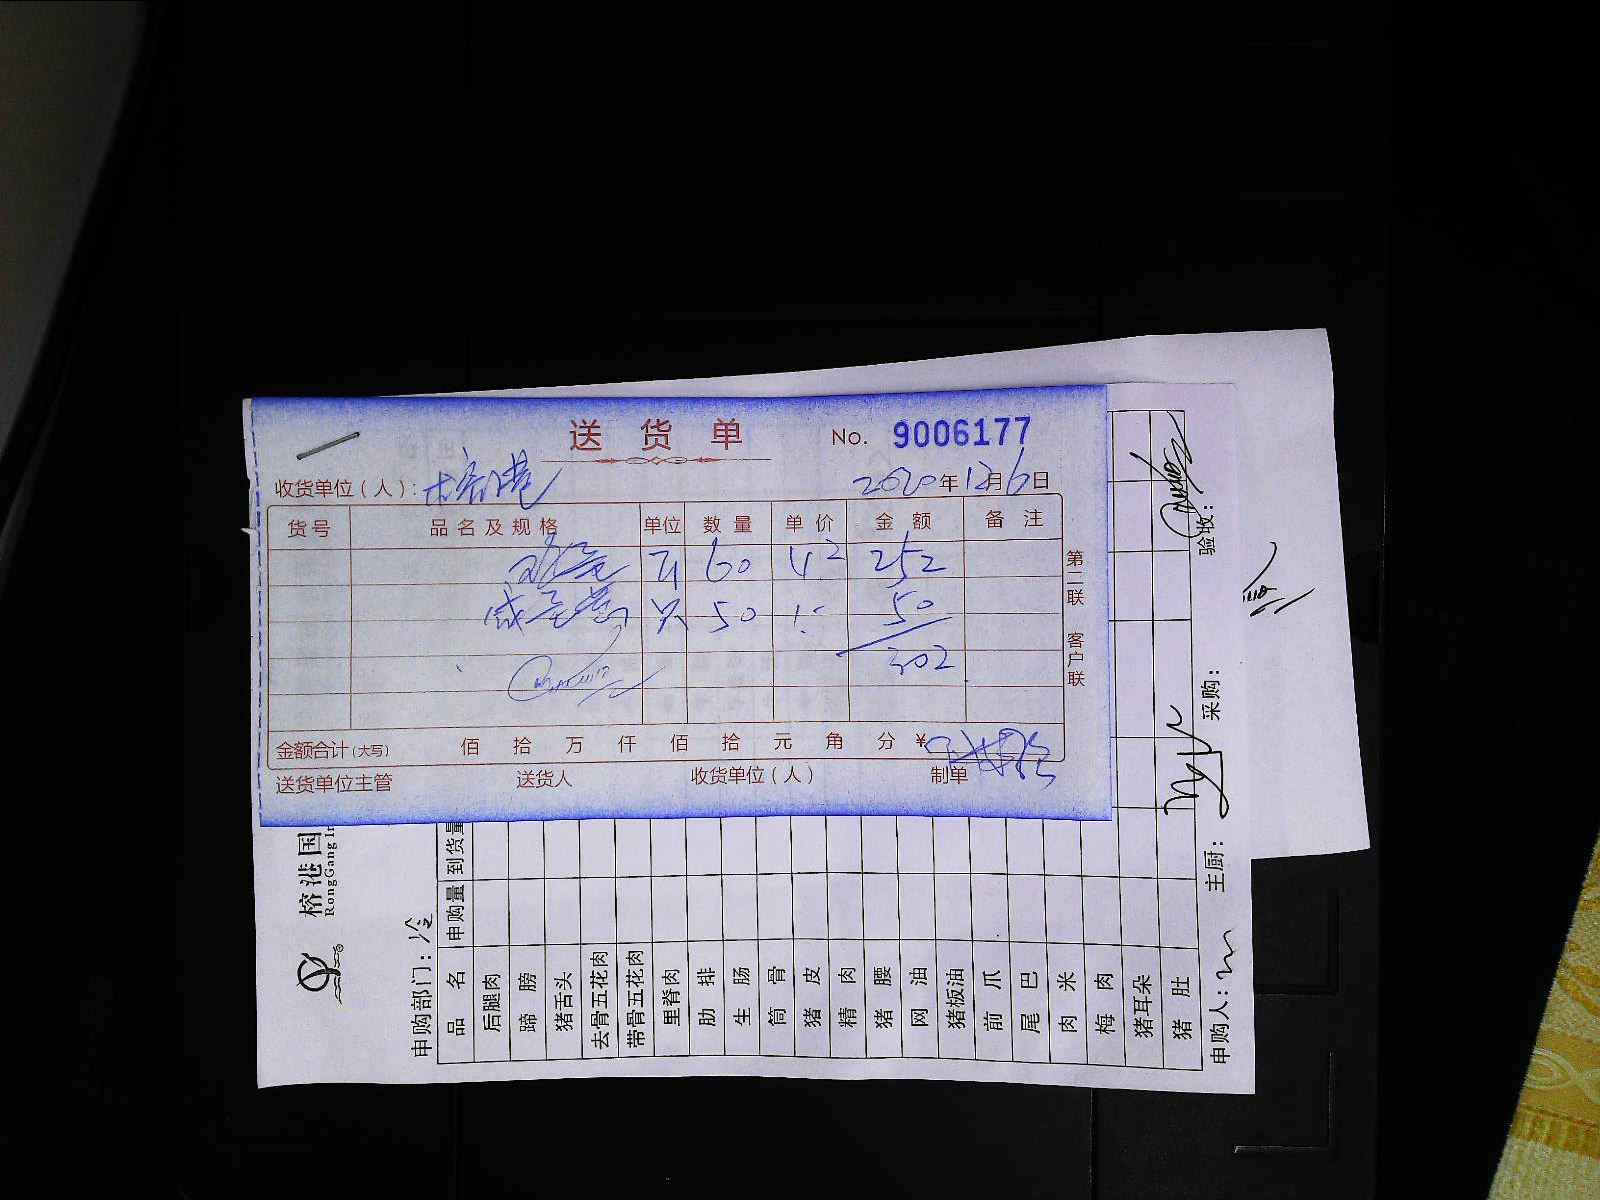 送货单 No. 9006177
收货单位(人): 榕港 2020年12月6日
货号 品名及规格 单位 数量 单价 金额 备注
鸡蛋 斤 60 4.2 252
咸蛋黄 只 50 1.- 50
302
金额合计(大写) 佰 拾 万 仟 佰 拾 元 角 分 ¥
送货单位主管 送货人 收货单位(人) 制单
第二联 客户联
榕港国
RongGang In
申购部门: 冷
品名 申购量 到货量
后腿肉
蹄膀
猪舌头
去骨五花肉
带骨五花肉
里脊肉
肋排
生肠
筒骨
猪皮
精肉
猪腰
网油
猪板油
前爪
尾巴
肉米
梅肉
猪耳朵
猪肚
申购人: 主厨: 采购: 验收: